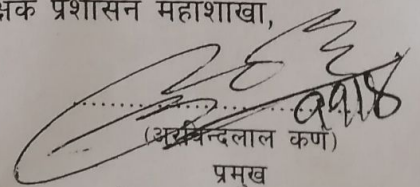 क्षक प्रशासन महाशाखा,
२१।४
(अरविन्दलाल कर्ण)
प्रमुख